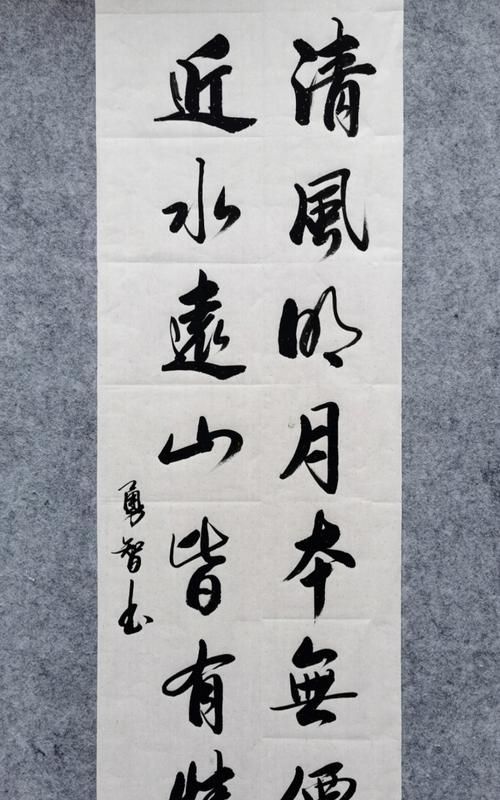 清風明月本無價
近水遠山皆有情
勇智书